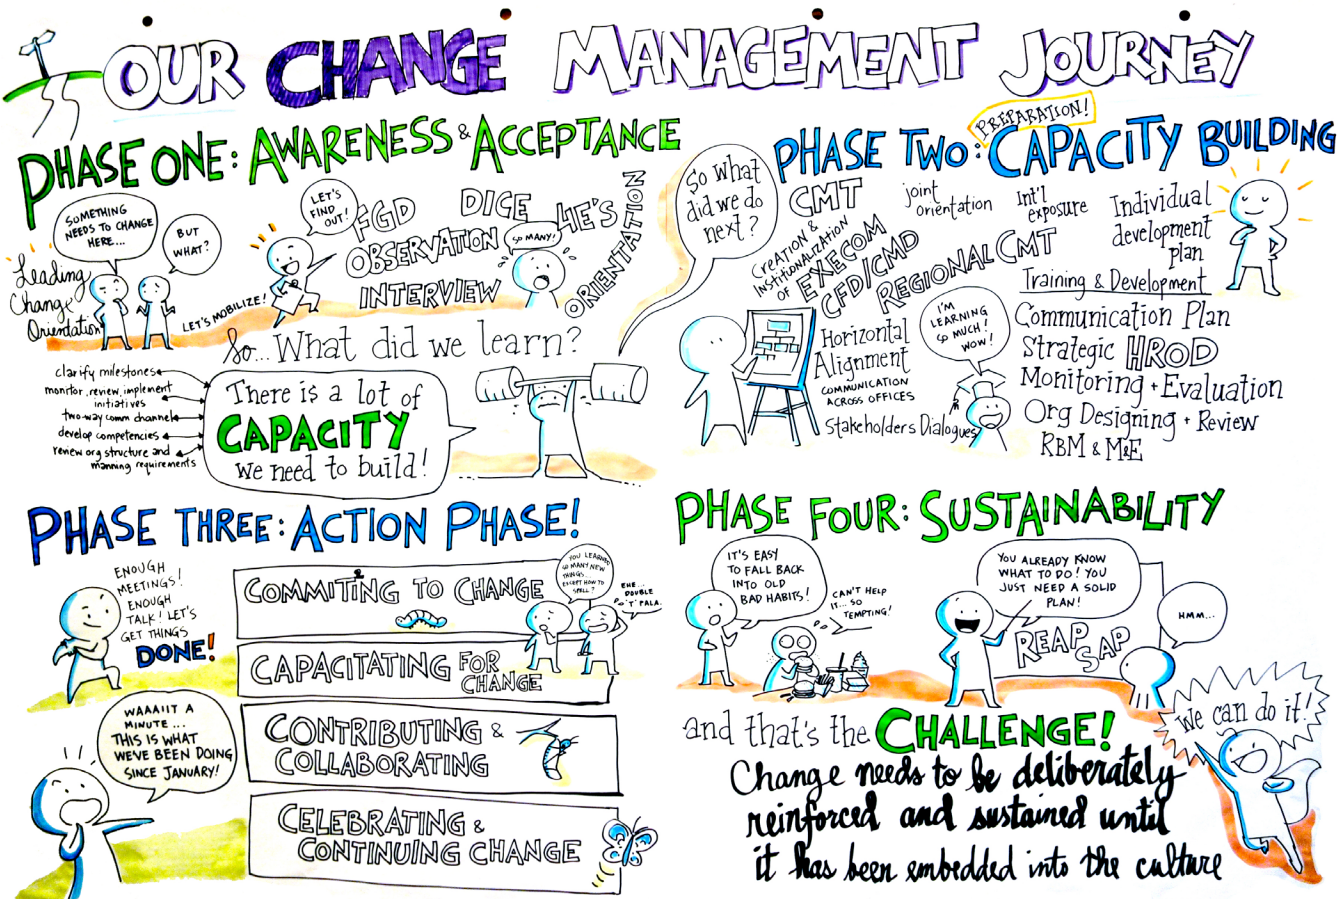 OUR CHANGE MANAGEMENT JOURNEY
PHASE ONE: AWARENESS & ACCEPTANCE
SOMETHING
NEEDS TO CHANGE
HERE...
BUT
WHAT?
Leading
Change
Orientation
LET'S MOBILIZE!
LET'S
FIND
OUT!
FGD
DICE
4E'S
OBSERVATION
SO MANY!
INTERVIEW
ORIENTATION
So... What did we learn?
clarify milestones
monitor, review, implement
initiatives
two-way comm channel
develop competencies
review org structure and
manning requirements
There is a lot of
CAPACITY
we need to build!
So what
did we do
next?
PREPARATION!
PHASE TWO: CAPACITY BUILDING
CMT
joint
orientation
Int'l
exposure
Individual
development
plan
CREATION &
Institutionalization
OF
EXECOM
CFD/ICMD
REGIONAL CMT
Training & Development
I'M
LEARNING
SO MUCH!
WOW!
Horizontal
Alignment
COMMUNICATION
ACROSS OFFICES
Stakeholders Dialogues
Communication Plan
Strategic HROD
Monitoring + Evaluation
Org Designing + Review
RBM & M&E
PHASE THREE: ACTION PHASE!
ENOUGH
MEETINGS!
ENOUGH
TALK! LET'S
GET THINGS
DONE!
WAAAIIT A
MINUTE...
THIS IS WHAT
WE'VE BEEN DOING
SINCE JANUARY!
COMMITING TO CHANGE
YOU LEARNED
SO MANY NEW
THINGS.
EXCEPT HOW TO
SPELL?
EHE...
DOUBLE
"T" PALA.
CAPACITATING FOR
CHANGE
CONTRIBUTING &
COLLABORATING
CELEBRATING &
CONTINUING CHANGE
PHASE FOUR: SUSTAINABILITY
IT'S EASY
TO FALL BACK
INTO OLD
BAD HABITS!
CAN'T HELP
IT... SO
TEMPTING!
YOU ALREADY KNOW
WHAT TO DO! YOU
JUST NEED A SOLID
PLAN!
REAP
SAP
HMM...
and that's the CHALLENGE!
We can do it!
Change needs to be deliberately
reinforced and sustained until
it has been embedded into the culture